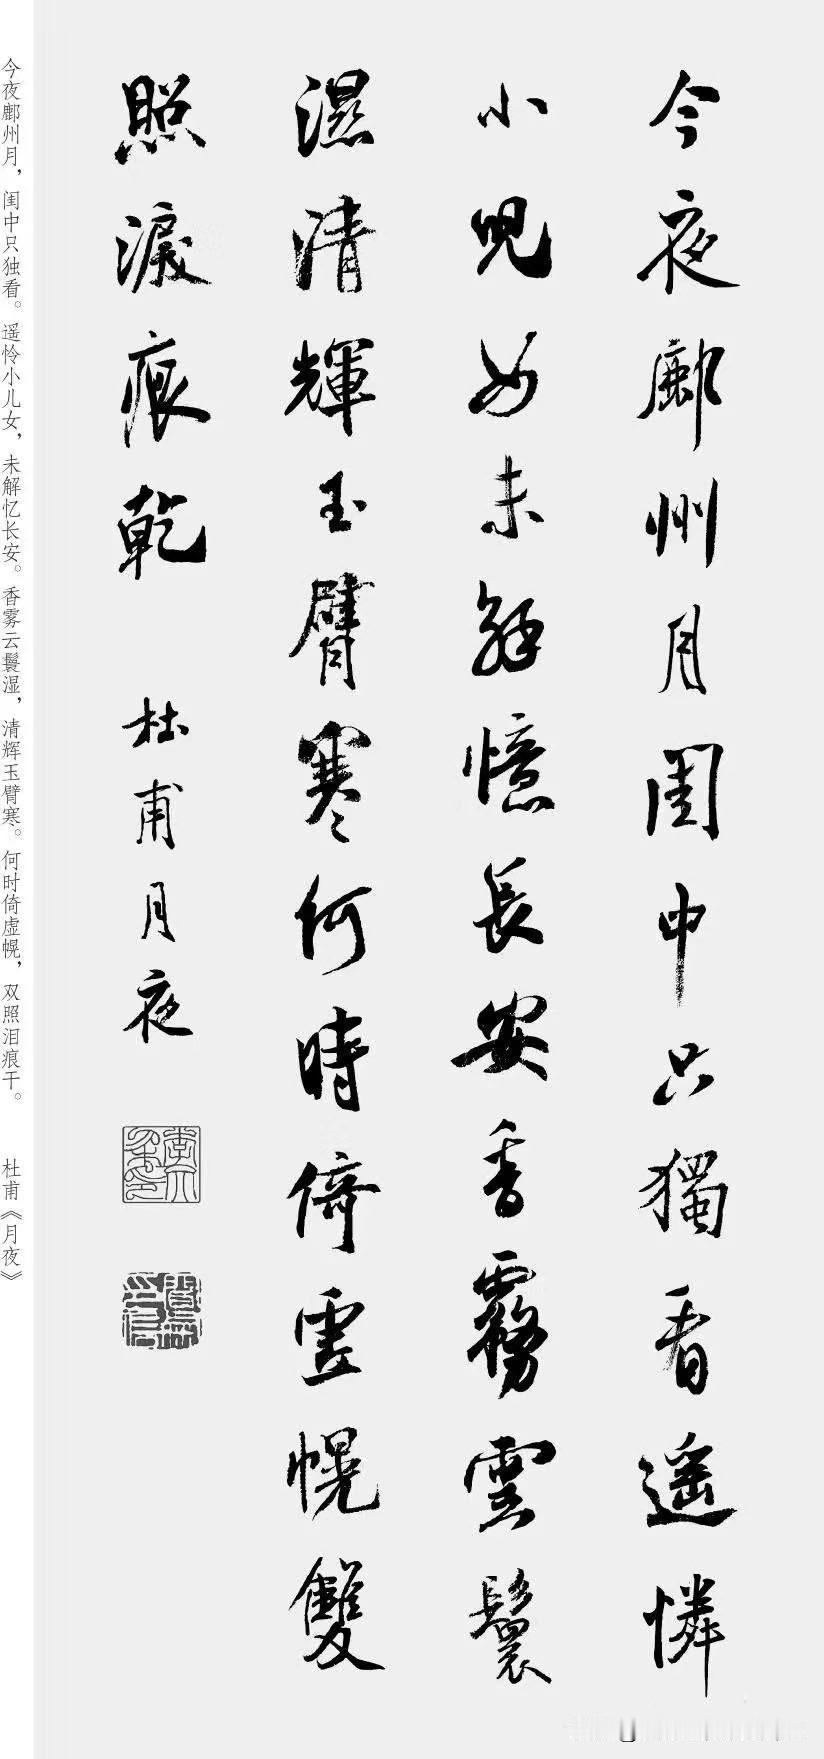 今夜鄜州月閨中只獨看遥憐
小兒女未解憶長安香霧雲鬟
濕清輝玉臂寒何時倚虛幌雙
照淚痕乾
杜甫月夜
今夜鄜州月，闺中只独看。遥怜小儿女，未解忆长安。香雾云鬟湿，清辉玉臂寒。何时倚虚幌，双照泪痕干。 杜甫《月夜》